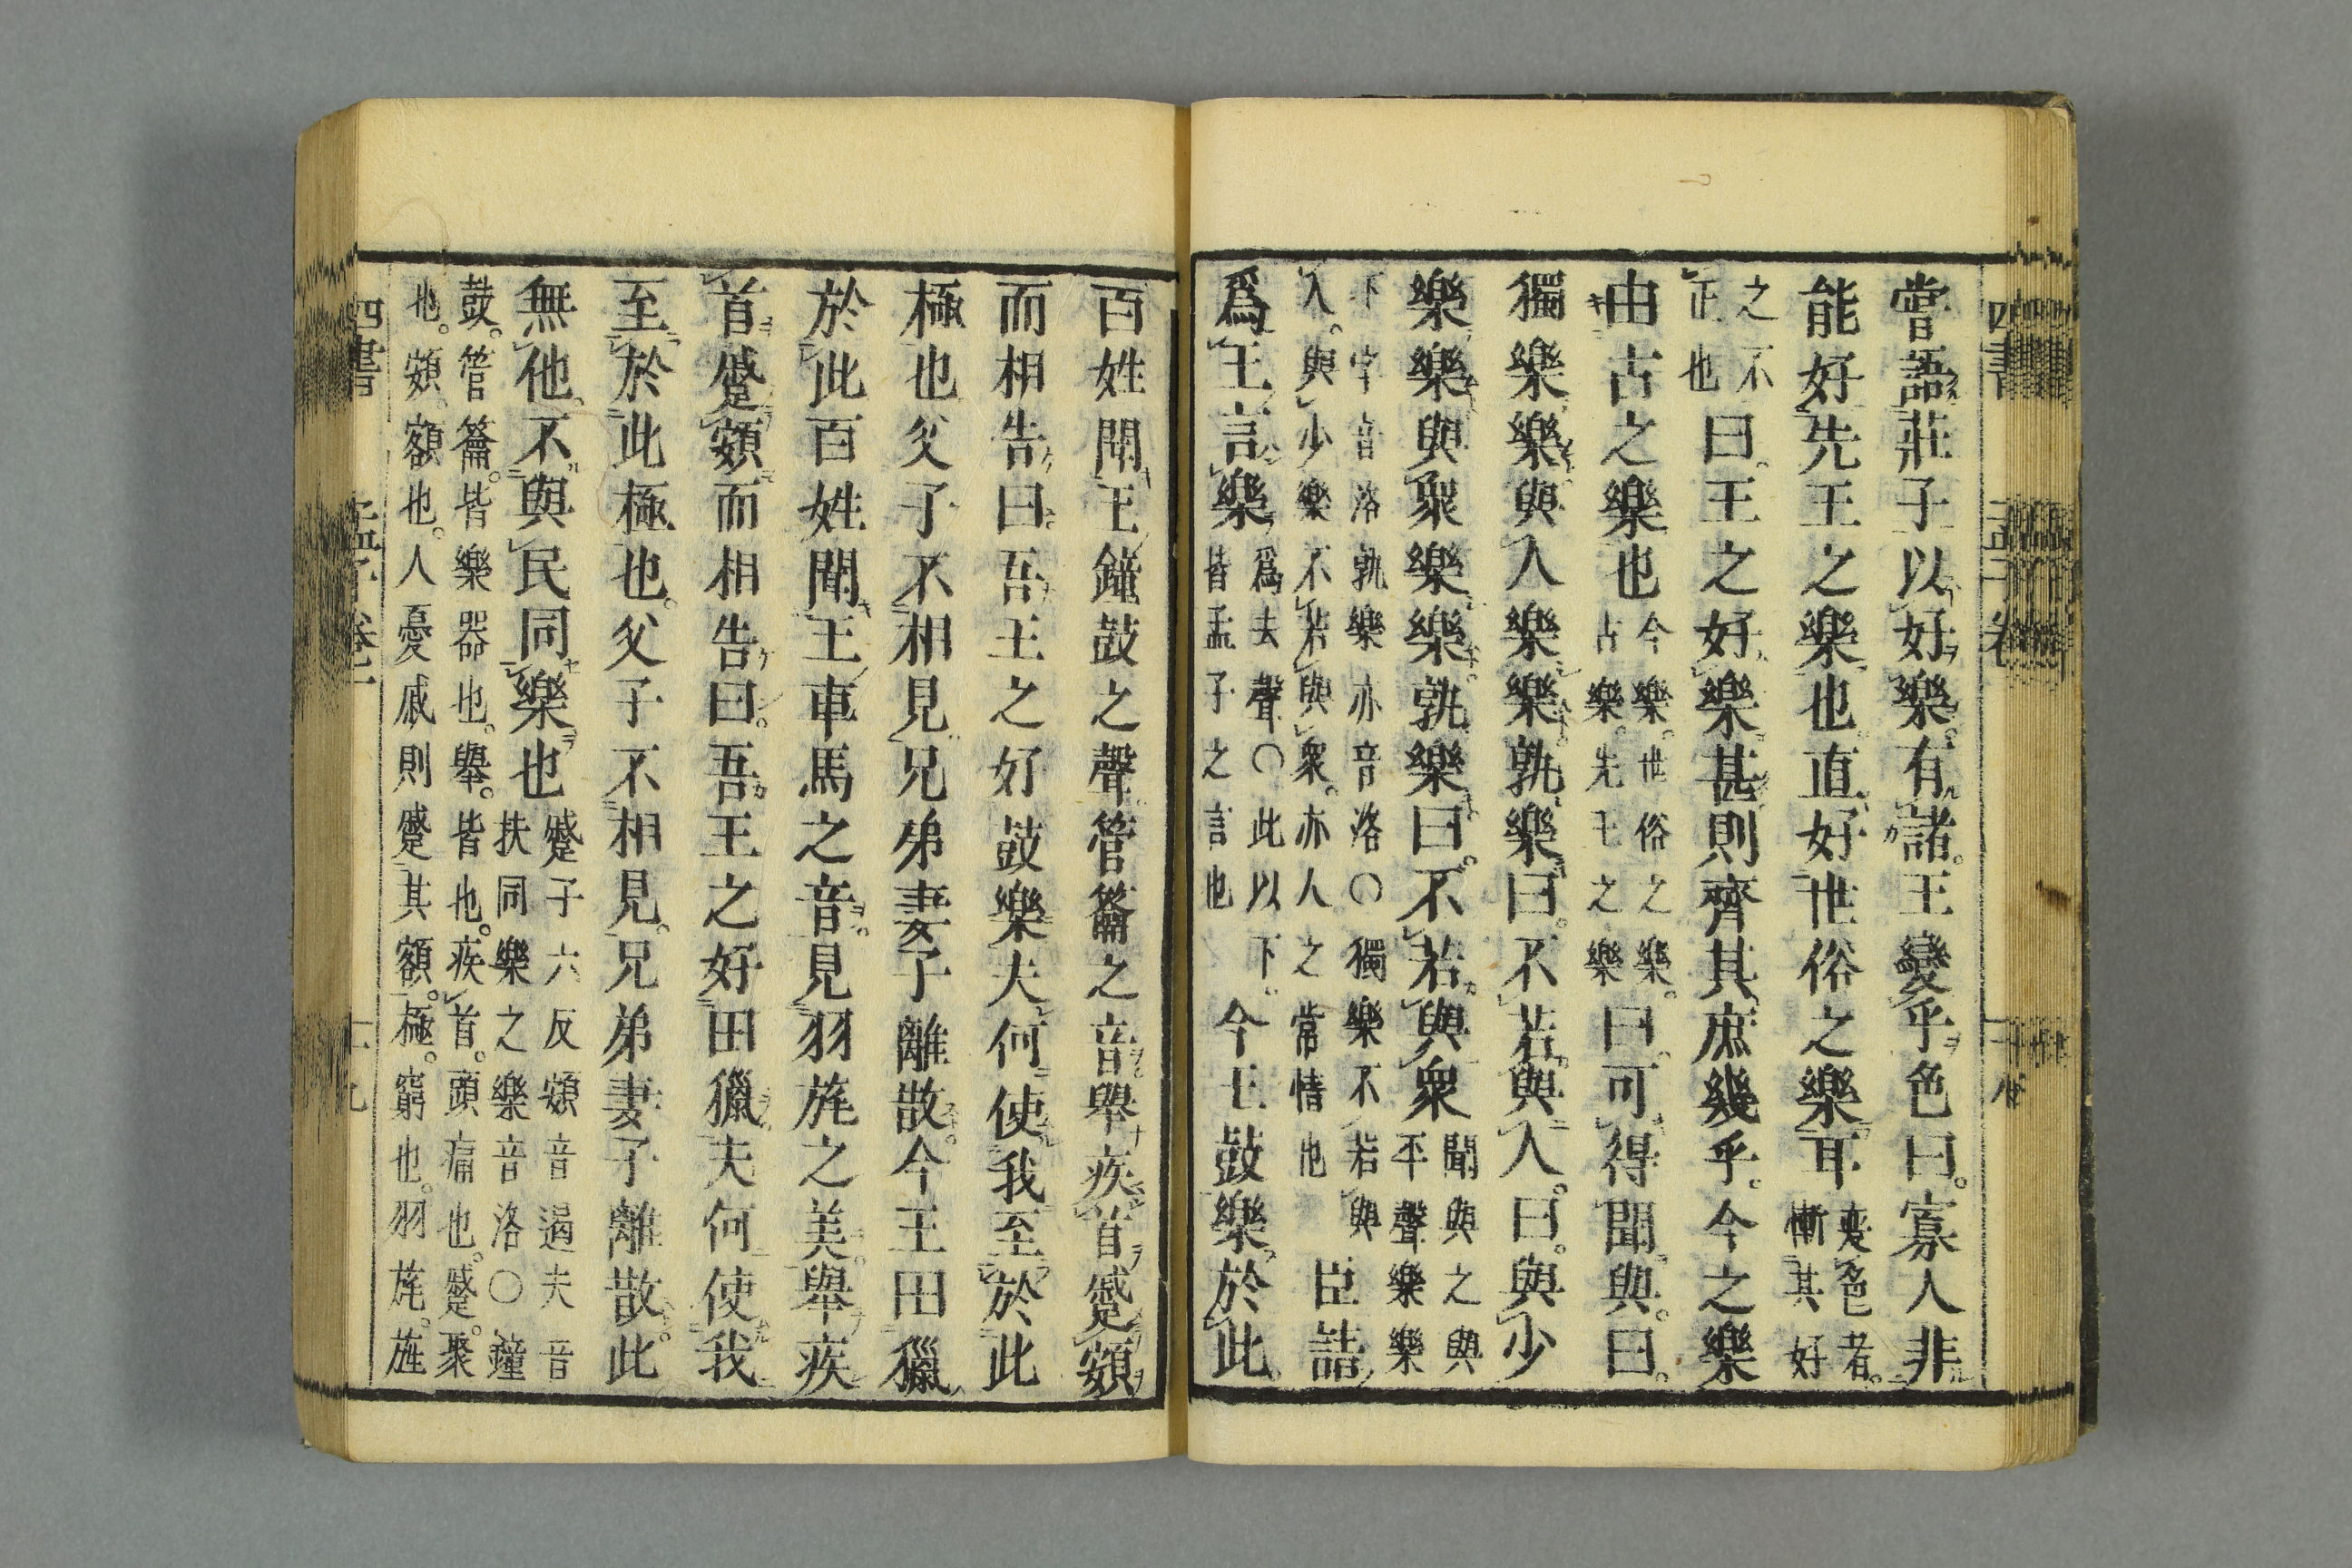 嘗語莊子以好樂。有諸。王變乎色曰。寡人非
能好先王之樂也。直好世俗之樂耳變色者。慚其好
之不正也曰。王之好樂甚則齊其庶幾乎。今之樂
由古之樂也今樂。世俗之樂。古樂。先王之樂曰。可得聞與。曰。
獨樂樂與人樂樂。孰樂曰。不若與人。曰。與少
樂樂與衆樂樂。孰樂曰。不若與衆聞與之與平聲樂樂
下字音洛孰樂亦音洛〇獨樂不若與人。與少樂不若與衆。亦人之常情也臣請
爲王言樂爲去聲〇此以下。皆孟子之言也今王鼓樂於此。
百姓聞王鐘鼓之聲管籥之音。舉疾首蹙頞
而相告曰吾王之好鼓樂夫何使我至於此
極也父子不相見兄弟妻子離散。今王田獵
於此百姓聞王車馬之音。見羽旄之美舉疾
首蹙頞而相告曰。吾王之好田獵夫何使我
至於此極也。父子不相見。兄弟妻子離散。此
無他。不與民同樂也蹙子六反頞音遏夫音扶同樂之樂音洛〇鐘
鼓。管籥。皆樂器也。舉。皆也。疾首。頭痛也。蹙。聚
也。頞。額也。人憂戚則蹙其額。極。窮也。羽旄。旌
四書
孟子卷一
十九